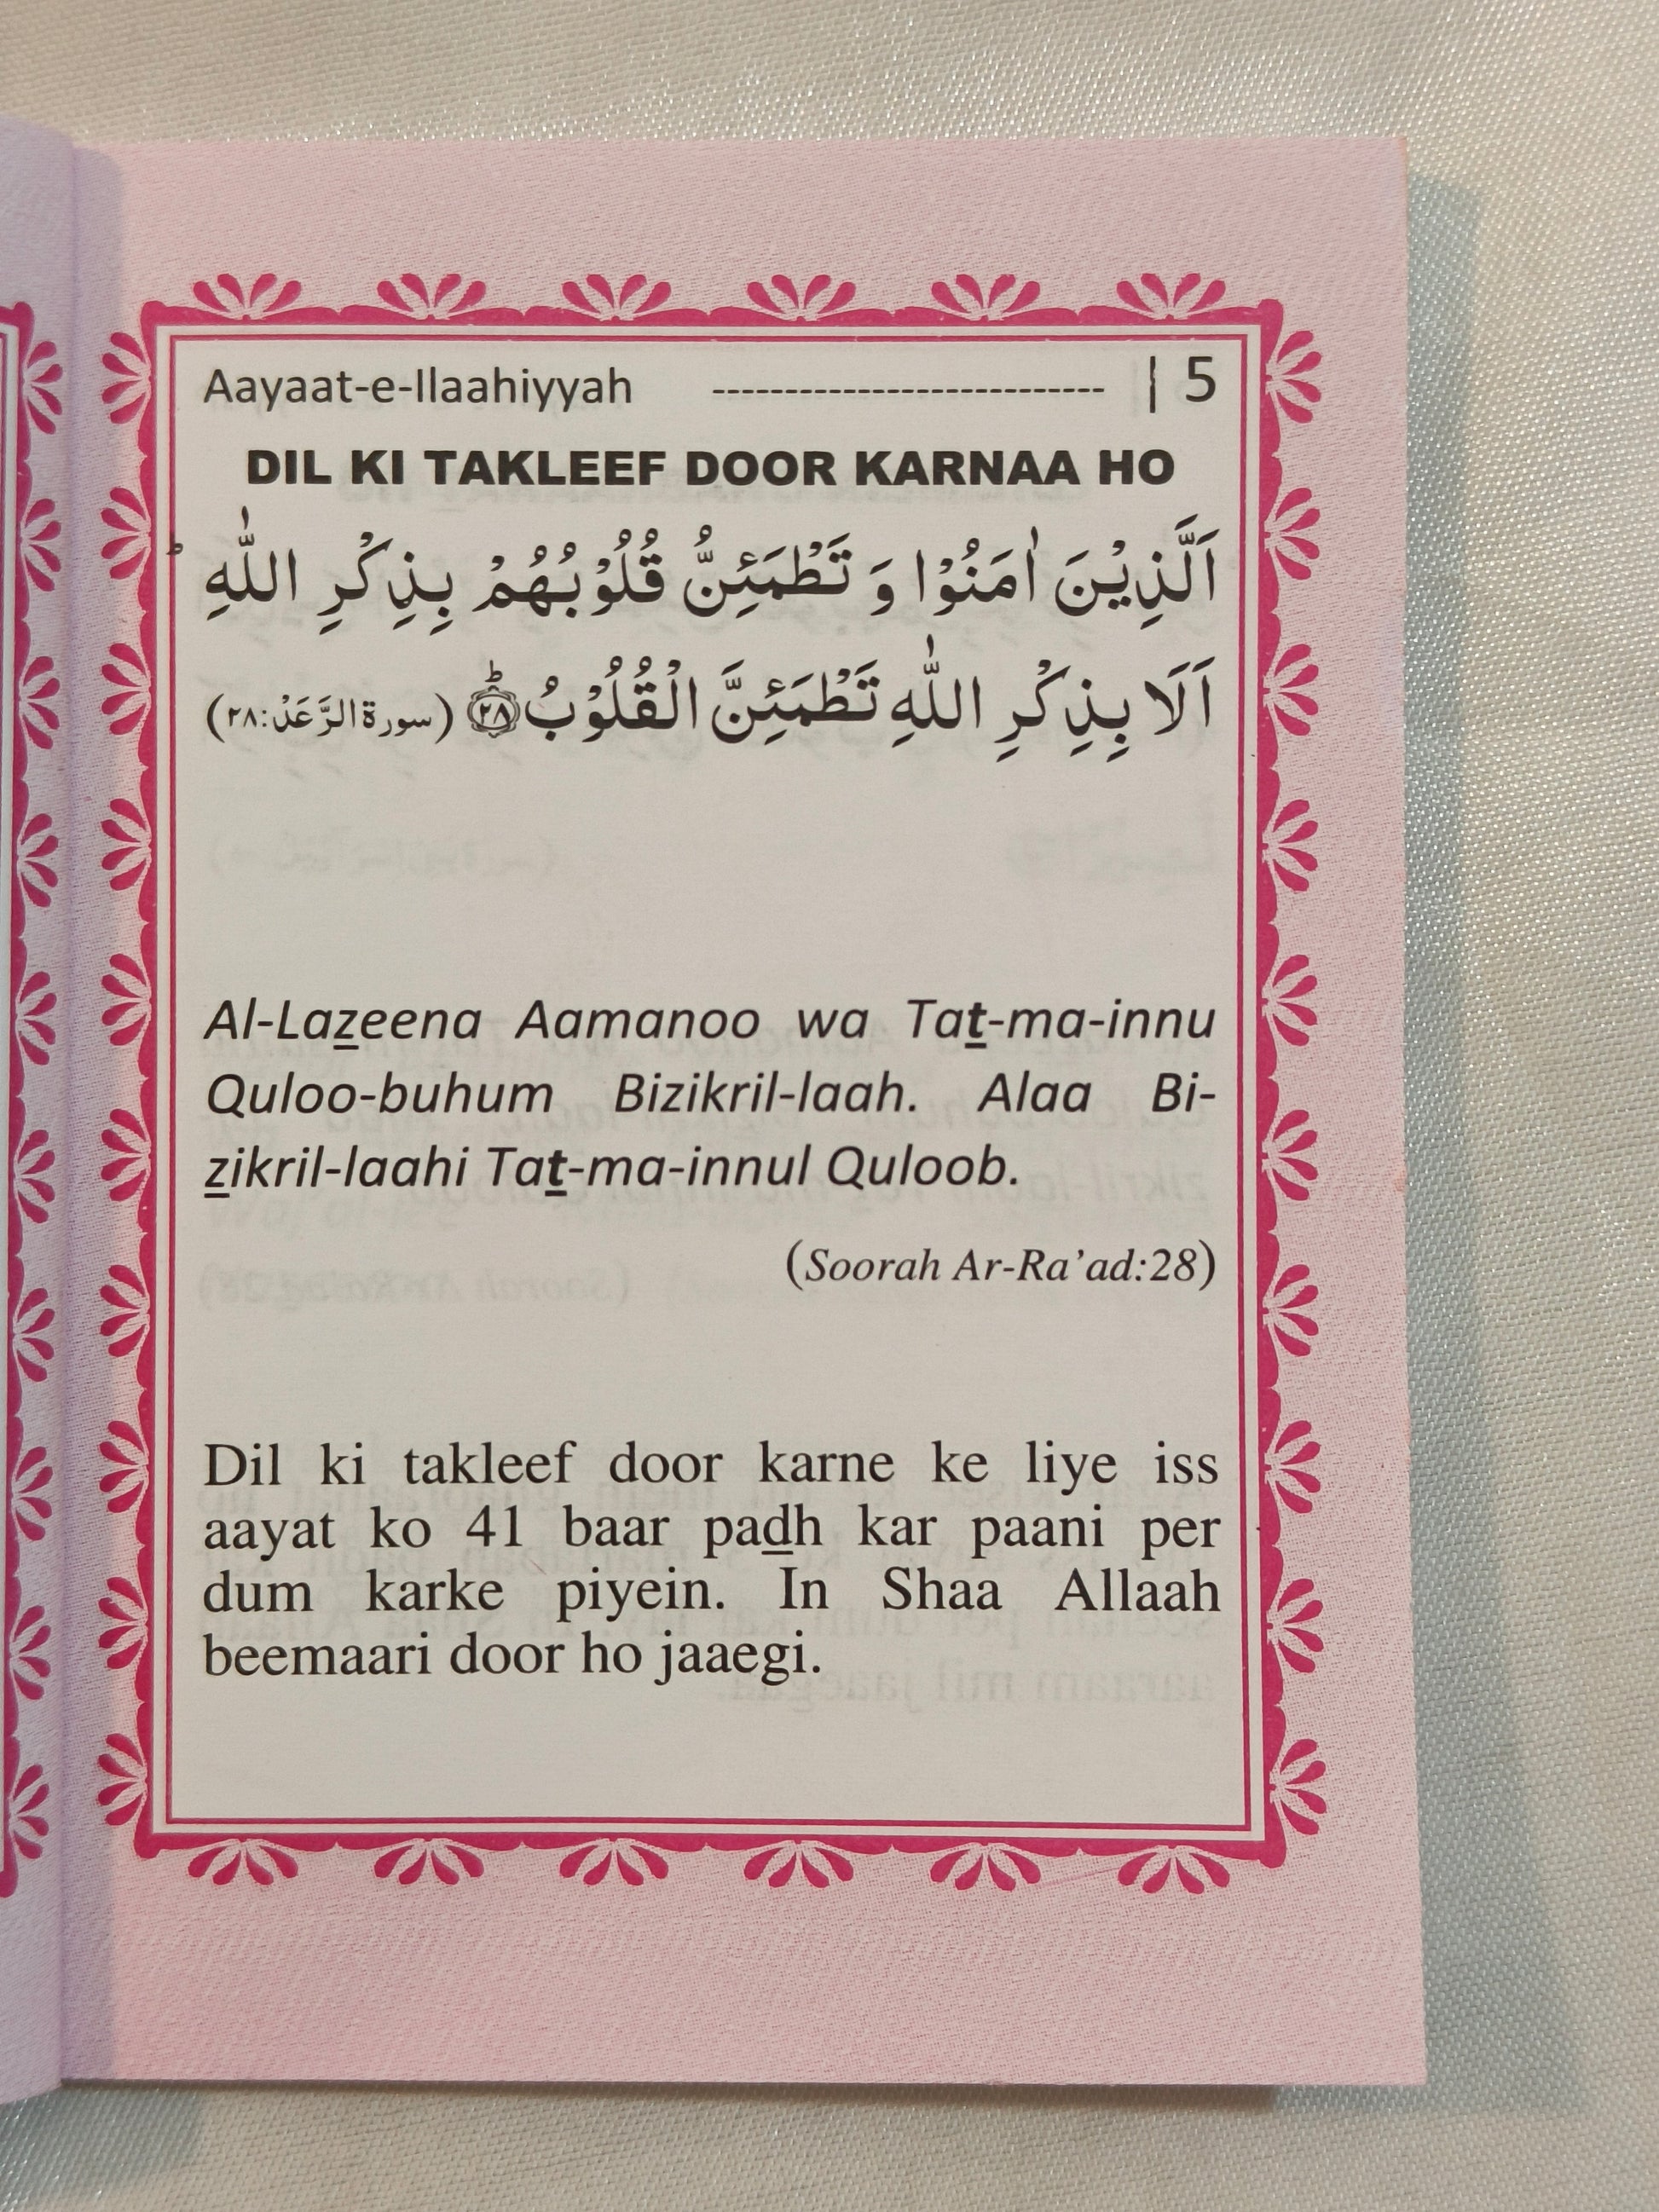 Aayaat-e-Ilaahiyyah --------------------------- | 5
DIL KI TAKLEEF DOOR KARNAA HO
اَلَّذِيْنَ اٰمَنُوْا وَ تَطْمَئِنُّ قُلُوْبُهُمْ بِذِكْرِ اللّٰهِ ؕ
اَلَا بِذِكْرِ اللّٰهِ تَطْمَئِنَّ الْقُلُوْبُ ؕ۲۸ (سورة الرَّعَدْ:۲۸)
Al-Lazeena Aamanoo wa Tat-ma-innu
Quloo-buhum Bizikril-laah. Alaa Bi-
zikril-laahi Tat-ma-innul Quloob.
(Soorah Ar-Ra’ad:28)
Dil ki takleef door karne ke liye iss
aayat ko 41 baar padh kar paani per
dum karke piyein. In Shaa Allaah
beemaari door ho jaaegi.